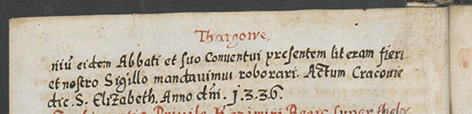 Thargowe,
niu eidem Abbati et suo Conventui presentem literam fieri
et nostro Sigillo mandavimus roborari. Actum Cracovie
die. S. Elizabeth. Anno dni. 1.3.3.6.
Regis super